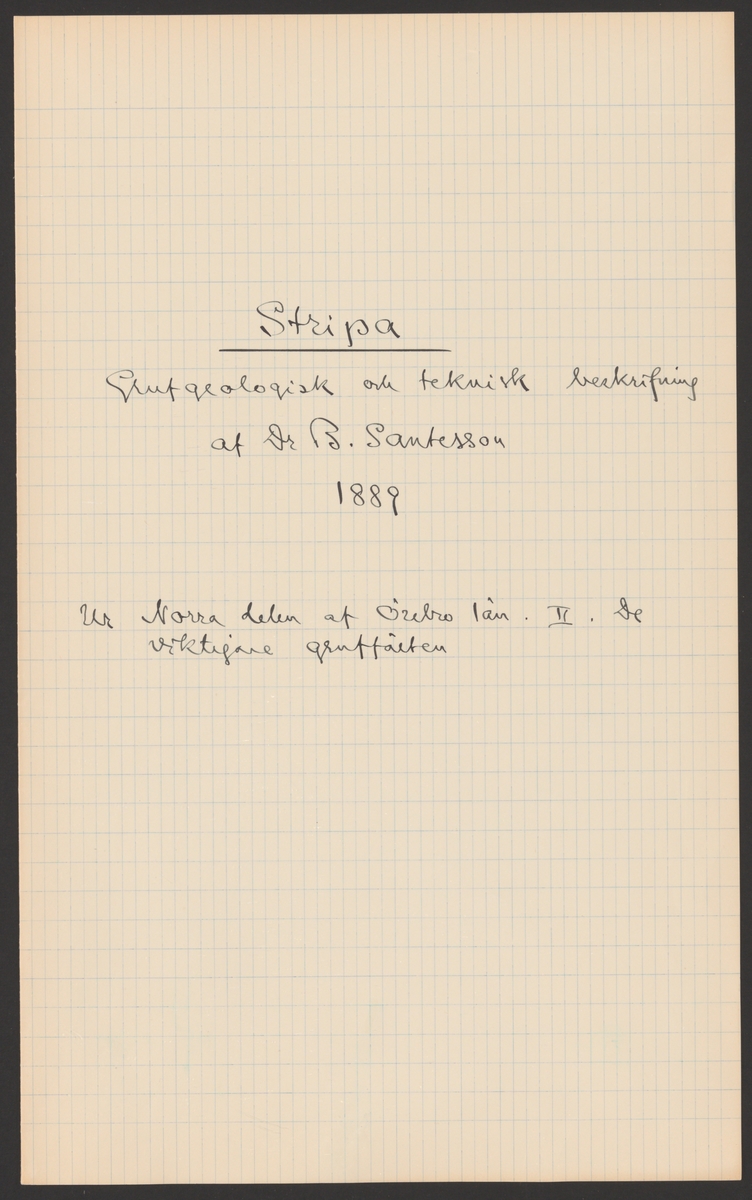 Stripa
Grufgeologisk och teknisk beskrifning
af Dr B. Santesson
1889
Ur Norra delen af Örebro län. II. De
viktigare gruffälten